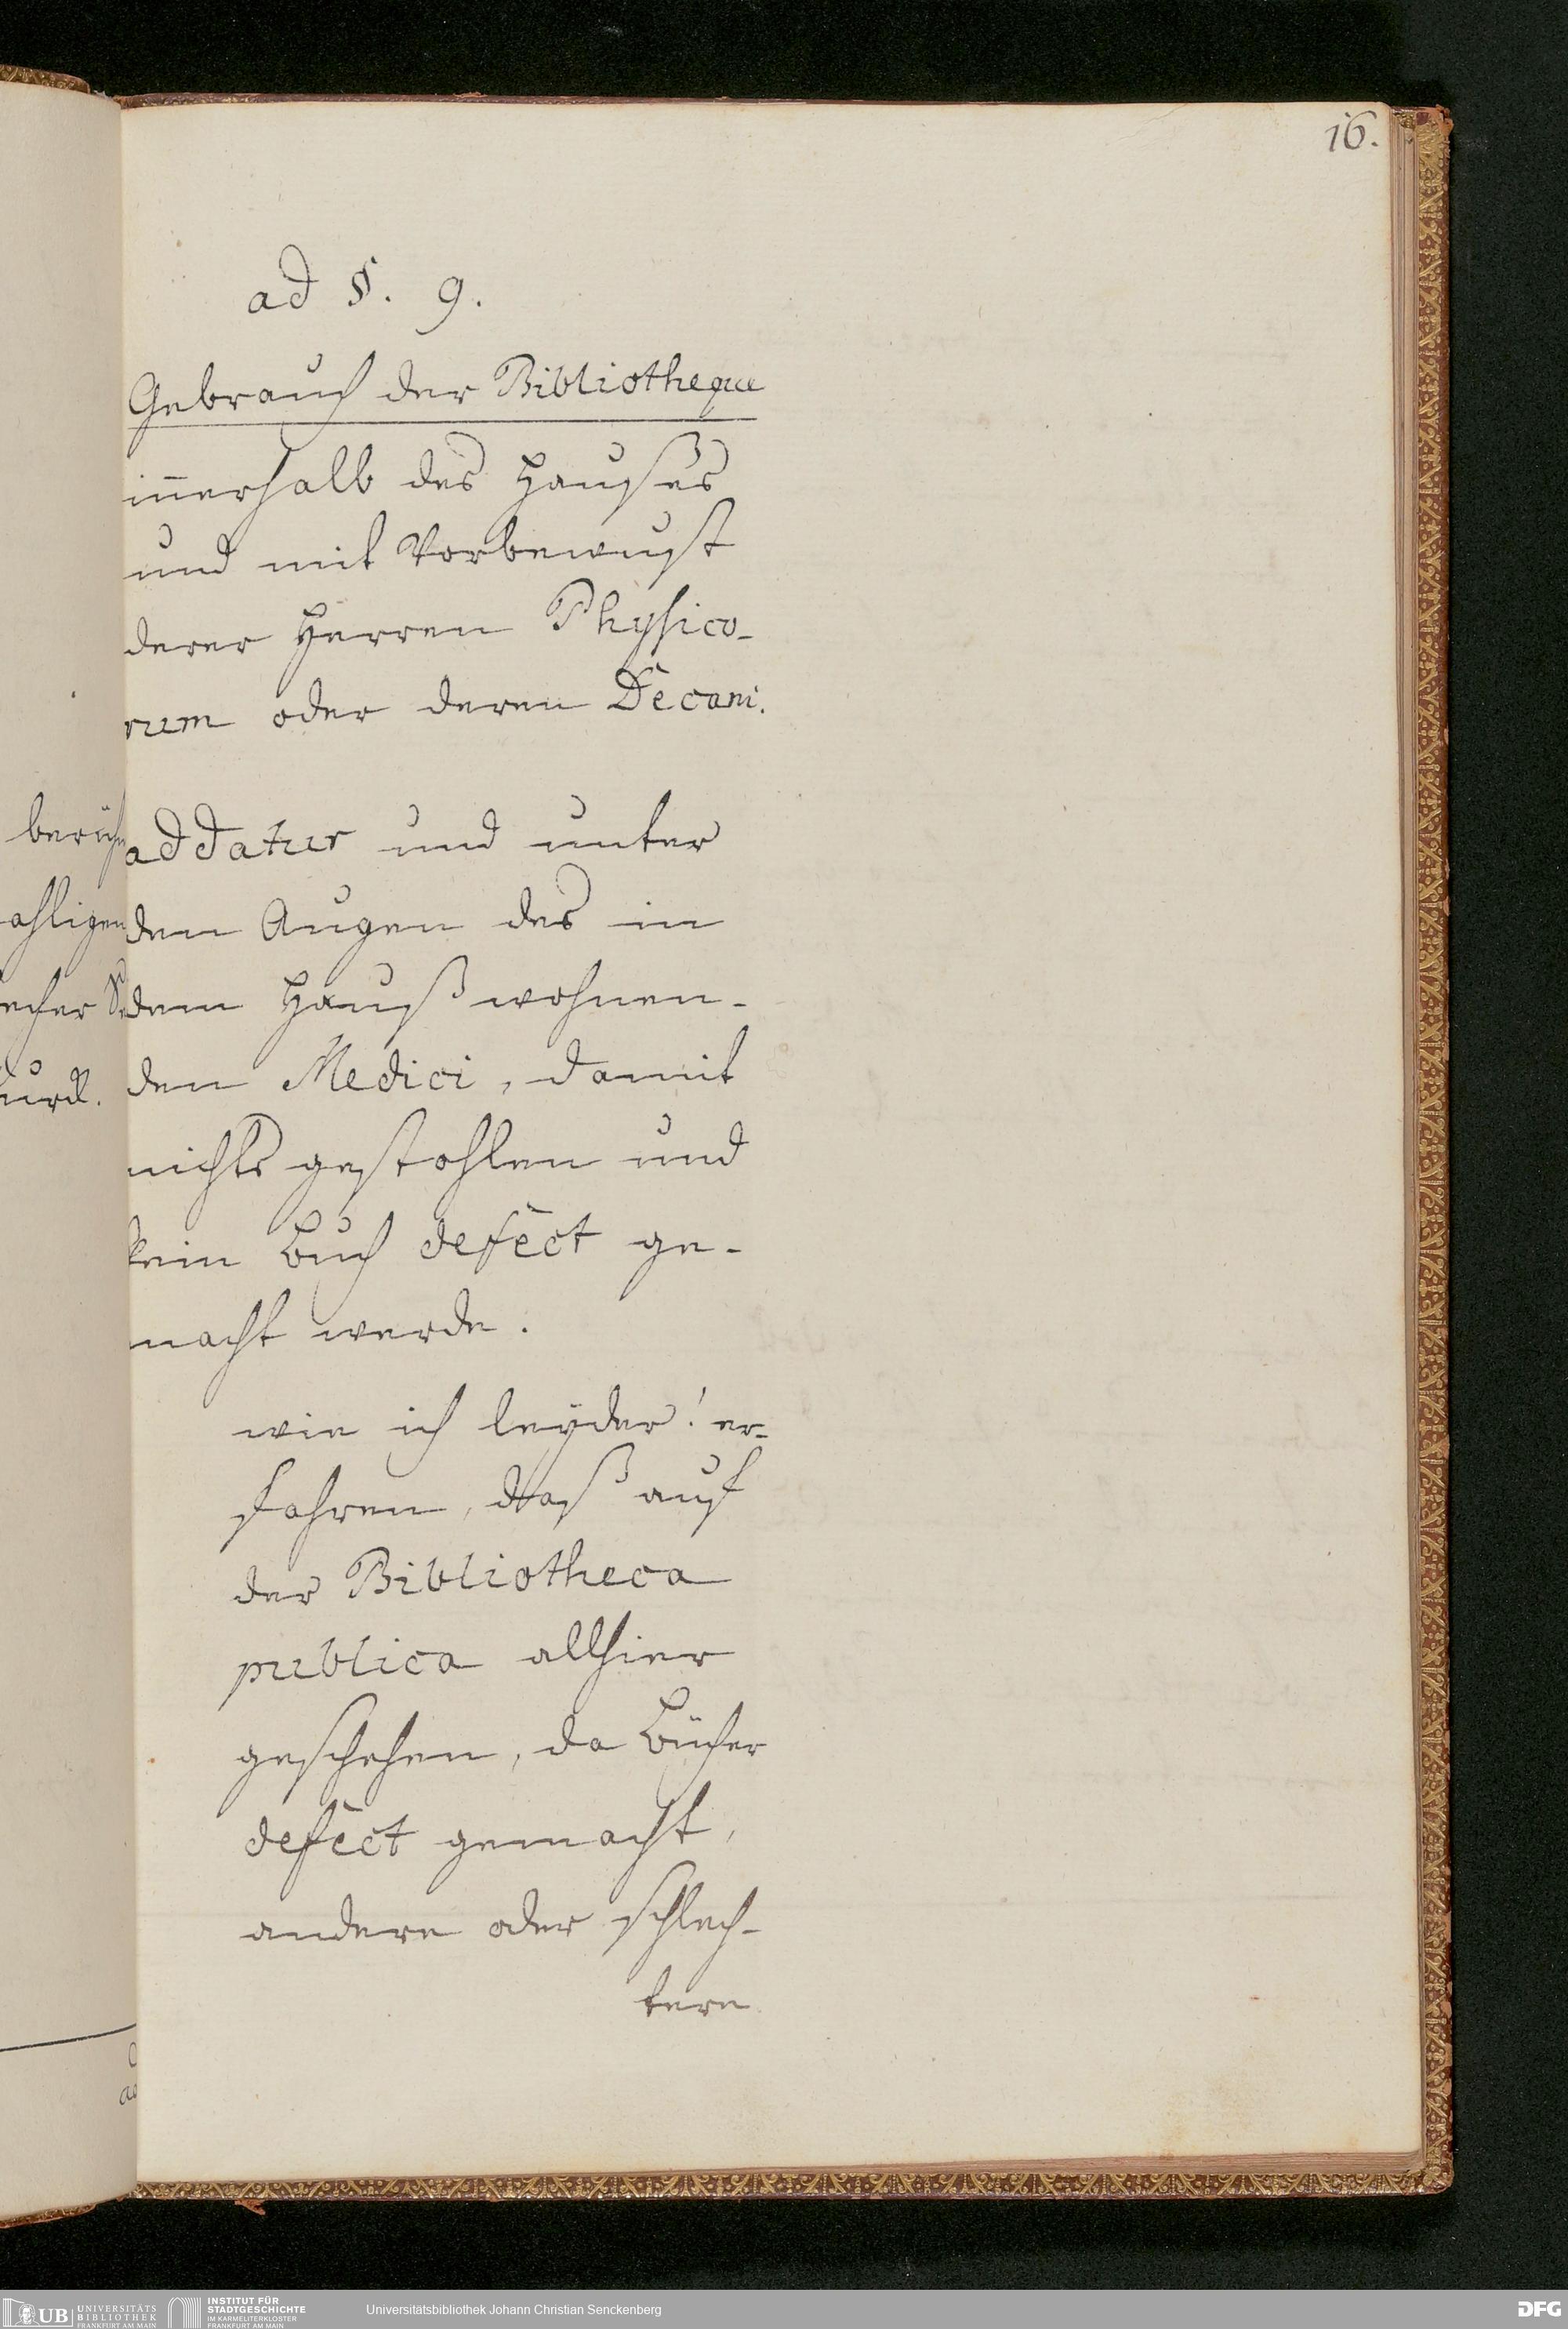 16.
ad §. 9.
Gebrauch der Bibliotheque
innerhalb des Haußes
und mit Vorbewust
derer Herren Physico-
rum oder deren Decani.
addatur und unter
den Augen des in
dem Hauß wohnen-
den Medici, damit
nichts gestohlen und
kein Buch defect ge-
macht werde.
wie ich leyder! er-
fahren, daß auf
der Bibliotheca
publica allhier
geschehen, da Bücher
defect gemacht,
andere oder schlech-
tere
UB UNIVERSITÄTS
BIBLIOTHEK
FRANKFURT AM MAIN
INSTITUT FÜR
STADTGESCHICHTE
IM KARMELITERKLOSTER
FRANKFURT AM MAIN
Universitätsbibliothek Johann Christian Senckenberg
DFG